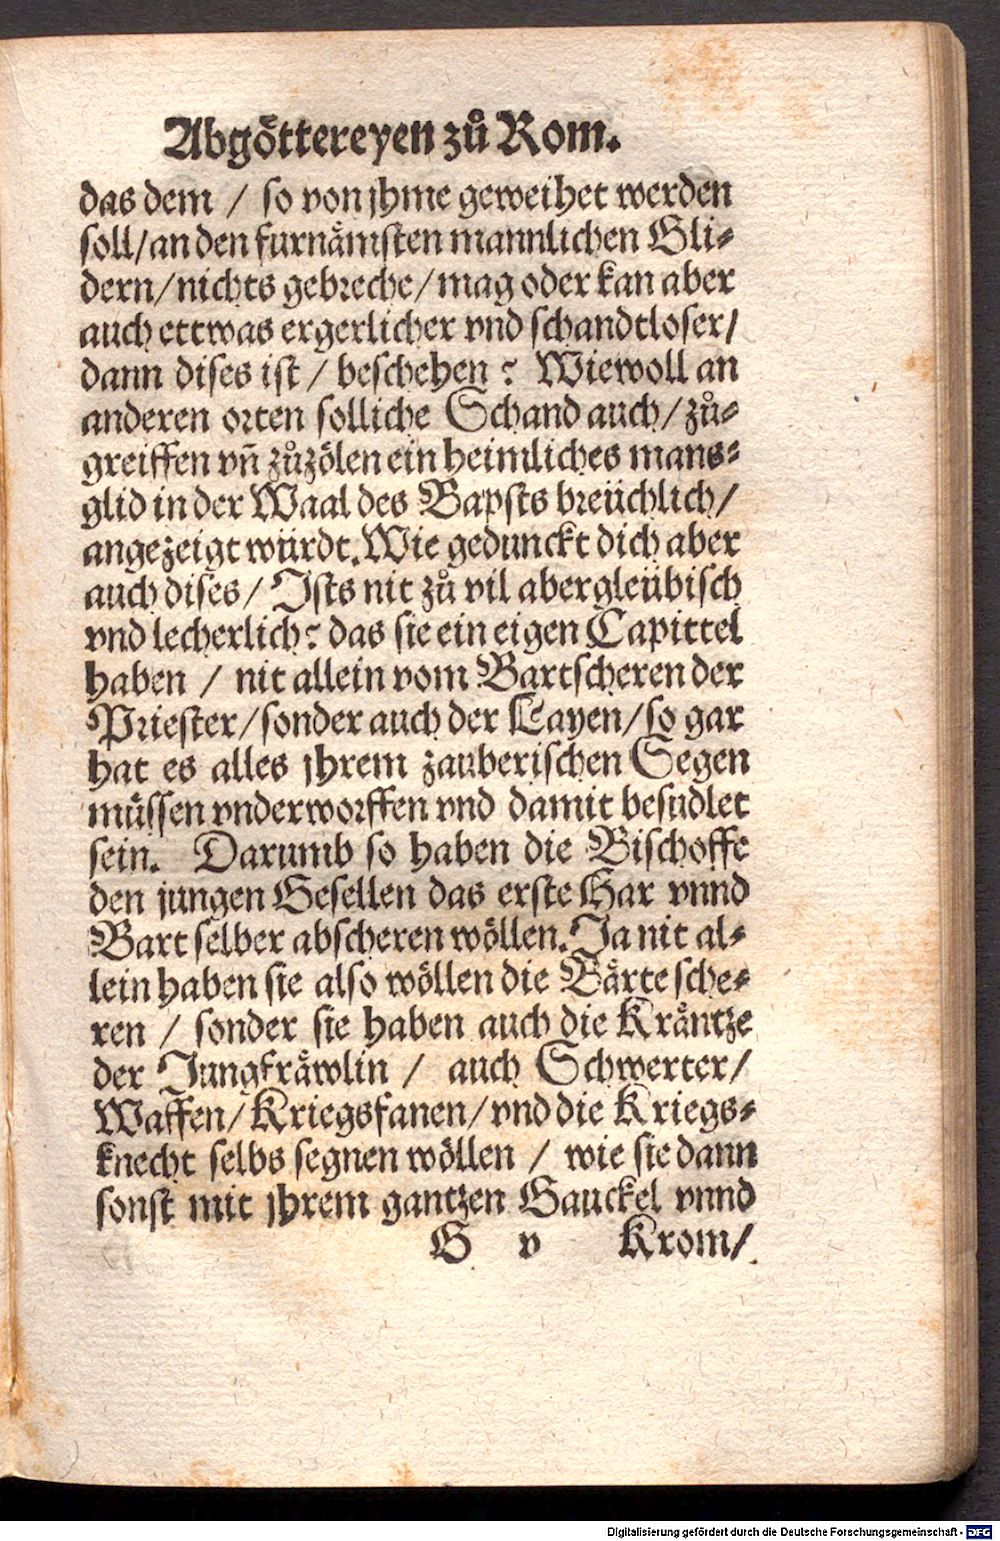 Abgoͤttereyen zuͦ Rom.
das dem / so von jhme geweihet werden
soll/an den furnaͤmsten mannlichen Gli⸗
dern/nichts gebreche/mag oder kan aber
auch ettwas ergerlicher vnd schandtloser/
dann dises ist / beschehen? Wiewoll an
anderen orten solliche Schand auch/zuͦ⸗
greiffen vn̄ zuͦzoͤlen ein heimliches mans⸗
glid in der Waal des Bapsts breüchlich/
angezeigt würdt. Wie gedunckt dich aber
auch dises/ Ists nit zuͦ vil abergleübisch
vnd lecherlich? das sie ein eigen Capittel
haben / nit allein vom Bartscheren der
Priester/sonder auch der Layen/so gar
hat es alles jhrem zauberischen Segen
muͤssen vnderworffen vnd damit besudlet
sein. Darumb so haben die Bischoffe
den jungen Gesellen das erste Har vnnd
Bart selber abscheren woͤllen. Ja nit al⸗
lein haben sie also woͤllen die Baͤrte sche⸗
ren / sonder sie haben auch die Kraͤntze
der Jungfraͤwlin / auch Schwerter/
Waffen/Kriegsfanen/vnd die Kriegs⸗
knecht selbs segnen woͤllen / wie sie dann
sonst mit jhrem gantzen Gauckel vnnd
G v Krom/
Digitalisierung gefördert durch die Deutsche Forschungsgemeinschaft - DFG